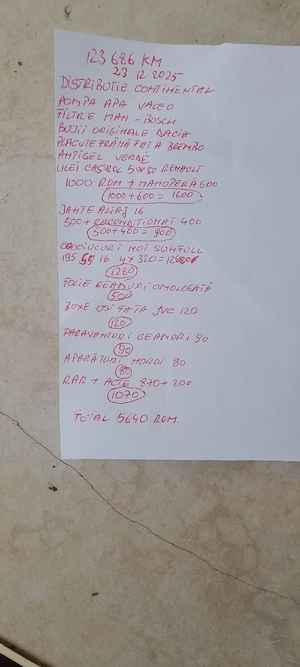 123 686 KM
23.12.2025
DISTRIBUTIE CONTINENTAL
POMPA APA VALEO
FILTRE MAN - BOSCH
BUJII ORIGINALE DACIA
PLACUTE FRÂNĂ FATA BREMBO
ANTIGEL VERDE
ULEI CASTROL 5W30 RENAULT
1000 RON + MANOPERĂ 600
1000 + 600 = 1600
JANTE ALIAJ 16
500 + RECONDITIONAT 400
500 + 400 = 900
CAUCIUCURI NOI SUNFULL
195 55 16 4 X 320 = 1280
1280
FOLIE GEAMURI OMOLOGATĂ
500
BOXE USI FATA JVC 120
120
PARAVANTURI GEAMURI 90
90
APĂRĂTORI NOROI 80
80
RAR + ACTE 870 + 200
1070
TOTAL 5640 RON